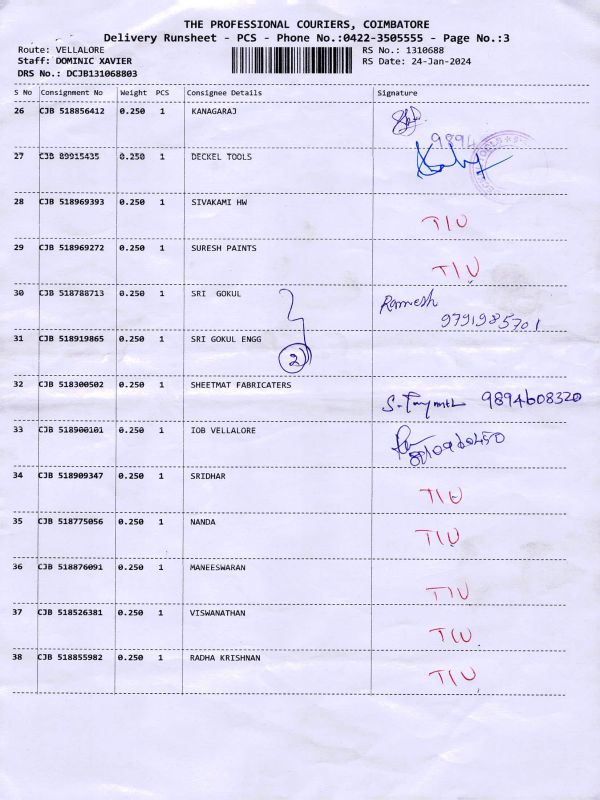 THE PROFESSIONAL COURIERS, COIMBATORE
Delivery Runsheet - PCS - Phone No.:0422-3505555 - Page No.:3
Route: VELLALORE RS No.: 1310688
Staff: DOMINIC XAVIER RS Date: 24-Jan-2024
DRS No.: DCJB131068803
S No Consignment No Weight PCS Consignee Details Signature
26 CJB 518856412 0.250 1 KANAGARAJ
9894
27 CJB 89915435 0.250 1 DECKEL TOOLS
28 CJB 518969393 0.250 1 SIVAKAMI HW
TIU
29 CJB 518969272 0.250 1 SURESH PAINTS
TIU
30 CJB 518788713 0.250 1 SRI GOKUL Ramesh
9791985701
31 CJB 518919865 0.250 1 SRI GOKUL ENGG
2
32 CJB 518300502 0.250 1 SHEETMAT FABRICATERS
9894608320
33 CJB 518900101 0.250 1 IOB VELLALORE
34 CJB 518909347 0.250 1 SRIDHAR
TIU
35 CJB 518775056 0.250 1 NANDA
TIU
36 CJB 518876091 0.250 1 MANEESWARAN
TIU
37 CJB 518526381 0.250 1 VISWANATHAN
TIU
38 CJB 518855982 0.250 1 RADHA KRISHNAN
TIU